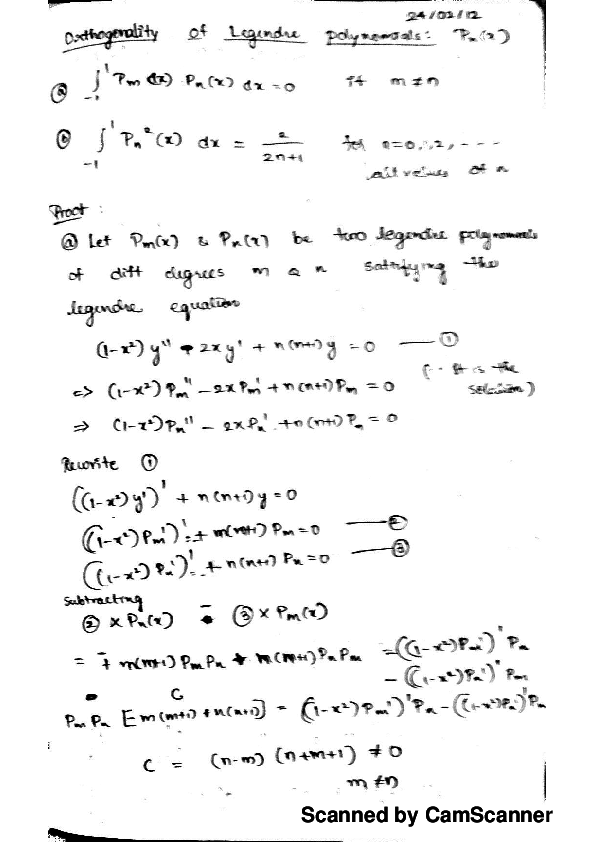 24/02/12
Orthogonality of Legendre polynomials: Pn(x)
ⓐ ∫₋₁¹ Pm(x) Pn(x) dx = 0 if m ≠ n
ⓑ ∫₋₁¹ Pn²(x) dx = 2/(2n+1) for n=0,1,2,---
all values of n
Proof :
ⓐ Let Pm(x) & Pn(x) be two legendre polynomials
of diff degrees m & n satisfying the
legendre equation
(1-x²) y'' - 2xy' + n(n+1)y = 0 —— ①
(∵ It is the solution)
=> (1-x²) Pm'' - 2xPm' + n(n+1)Pm = 0
⇒ (1-x²)Pn'' - 2xPn' + n(n+1)Pn = 0
Rewrite ①
((1-x²)y')' + n(n+1)y = 0
((1-x²)Pm')' = + m(m+1)Pm = 0 —— ②
((1-x²)Pn')' = + n(n+1)Pn = 0 —— ③
Subtracting
② × Pn(x) - ③ × Pm(x)
= + m(m+1)PmPn + m(m+1)PnPm = ((1-x²)Pm')'Pn
- ((1-x²)Pn')'Pm
C
PmPn [m(m+1) + n(n+1)] = ((1-x²)Pm')'Pn - ((1-x²)Pn')'Pm
C = (n-m)(n+m+1) ≠ 0
m ≠ n
Scanned by CamScanner